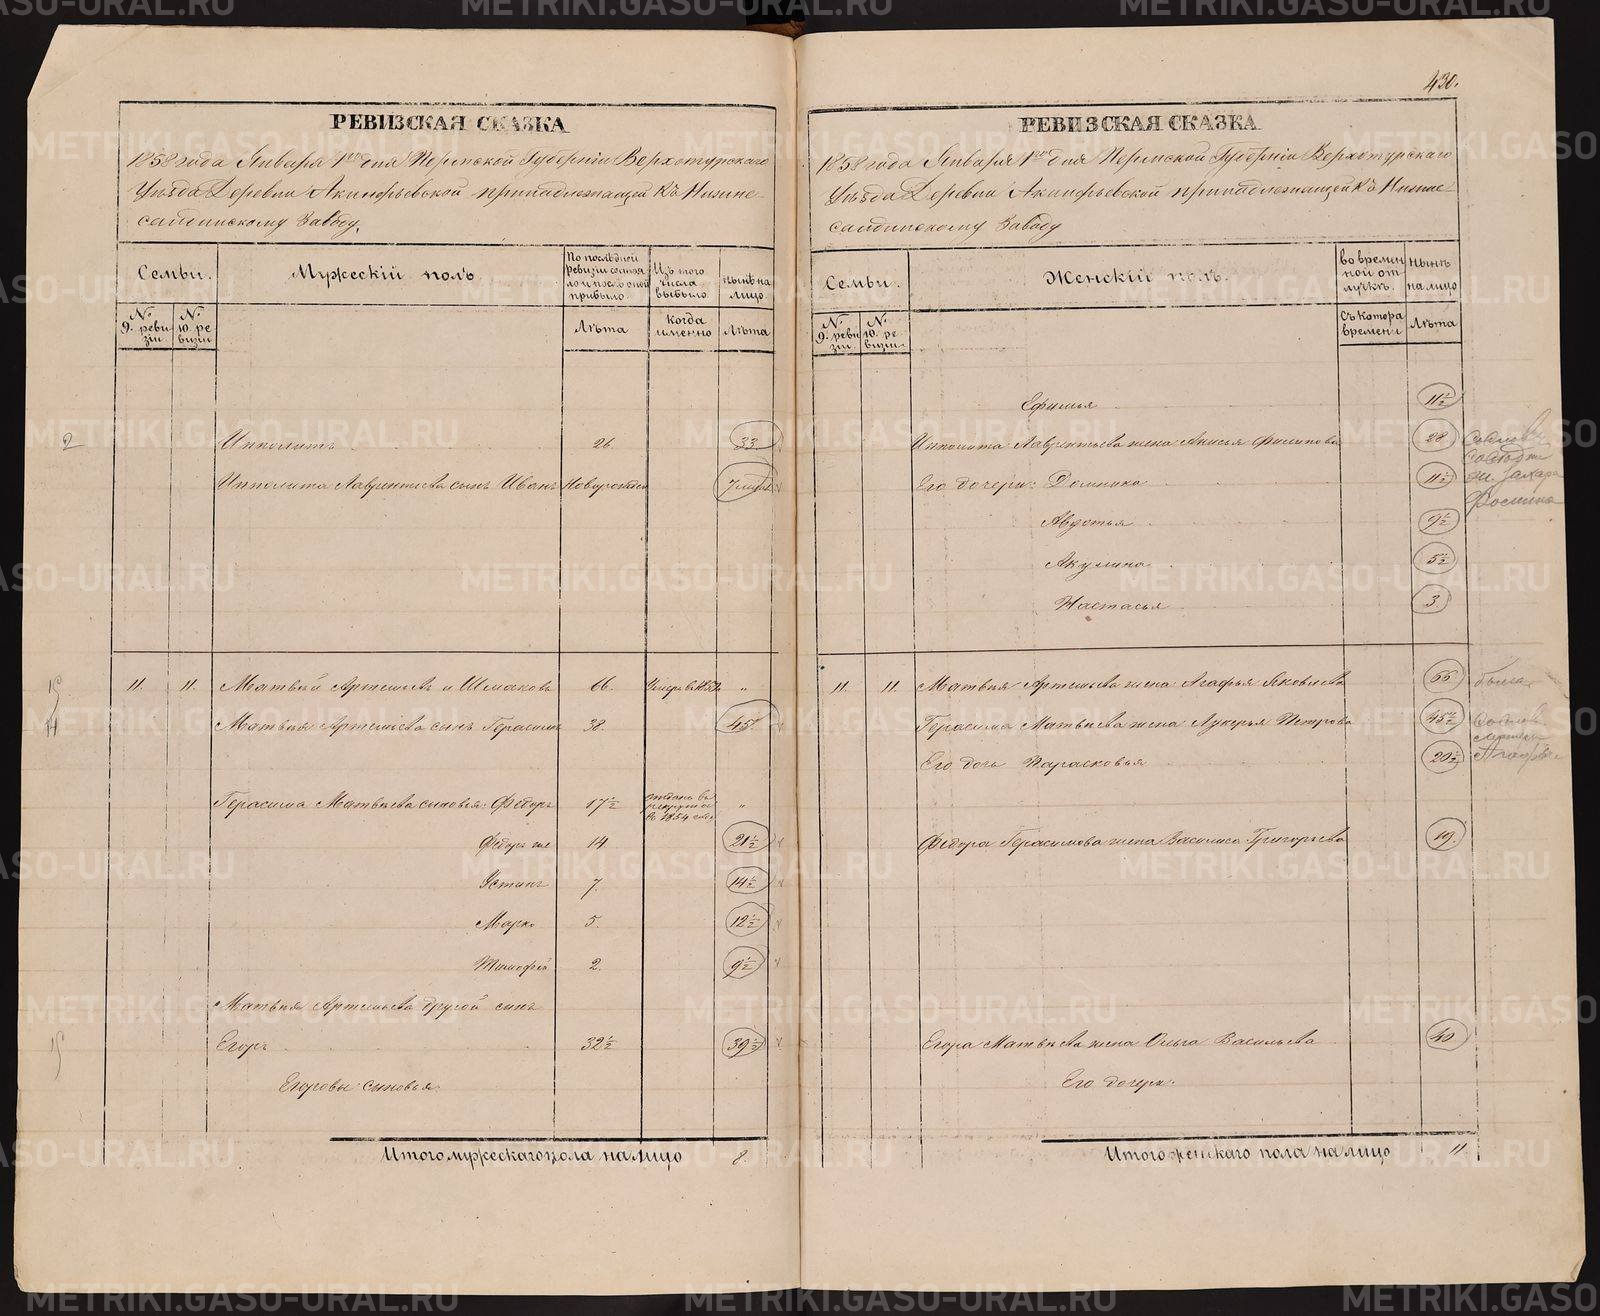 430.
РЕВИЗСКАЯ СКАЗКА
1858 года Января 1го дня Пермской Губерніи Верхотурскаго
Уѣзда Деревни Акинфьевской принадлежащей къ Нижне-
салдинскому Заводу.
Семьи.
Мужескій полъ.
По послѣдней ревизіи состояло и послѣ оной прибыло.
Изъ того числа выбыло
нынѣ на лицо
№ 9. ревизіи
№ 10. ревизіи
Лѣта
когда именно
Лѣта
2
Ипполитъ 26. 33
Ипполита Лаврентьева сынъ Иванъ Новорожден
11. 11. Матвѣй Артемьевъ 66. 1852 "
Матвѣя Артемьева сынъ Герасимъ 38. 45
Герасима Матвѣева сыновья: Федоръ 17½ отданъ въ рекруты въ 1854 году "
Федоръ же 14 21½
Устинъ 7. 14½
Марко 5. 12½
Тимофей 2. 9½
Матвѣя Артемьева другой сынъ
Егоръ 32½ 39½
Егоровы сыновья:
Итого мужескаго пола на лицо 8.
РЕВИЗСКАЯ СКАЗКА
1858 года Января 1го дня Пермской Губерніи Верхотурскаго
Уѣзда Деревни Акинфьевской принадлежащей къ Нижне-
салдинскому Заводу
Семьи.
Женскій полъ.
во временной отлучкѣ.
нынѣ на лицо
№ 9. ревизіи
№ 10. ревизіи
Съ котора времени
Лѣта
Ефимья 11½
Ипполита Лаврентьева жена Анисья Филипова 28
Его дочери: Домника 11½
Авдотья 9½
Акулина 5½
Настасья 3.
11. 11. Матвѣя Артемьева жена Агафья Яковлева 66
Герасима Матвѣева жена Лукерья Петрова 45½
Его дочь Парасковья 20½
Федора Герасимова жена Василиса Григорьева 19.
Егора Матвѣева жена Ольга Васильева 40
Его дочери:
Итого женскаго пола на лицо 11.
METRIKI.GASO-URAL.RU